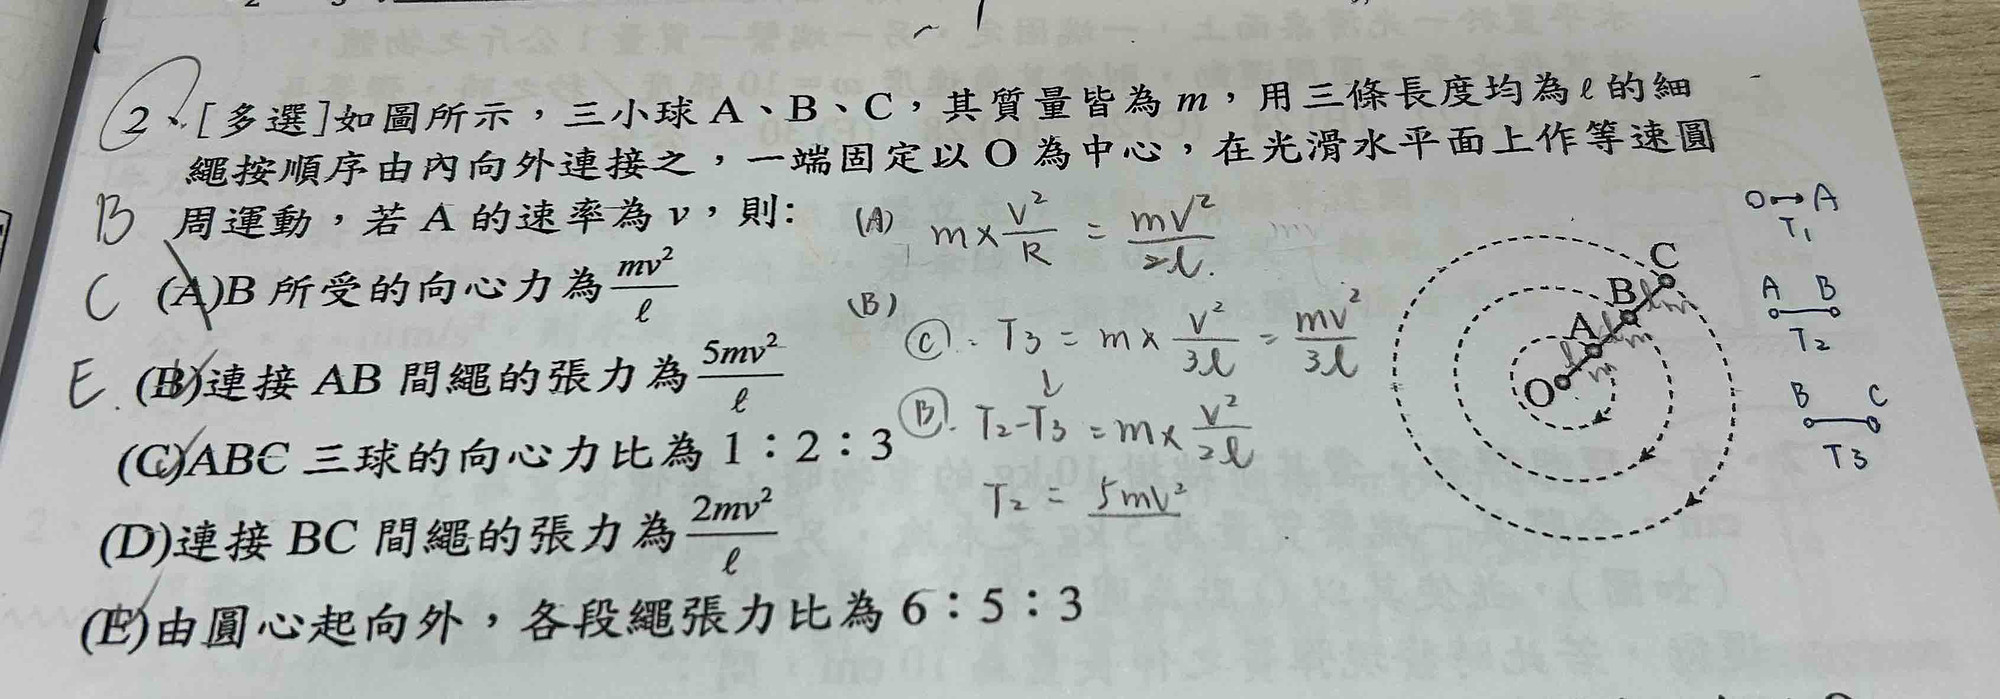 2、[多選]如圖所示，三小球 A、B、C，其質量皆為 m，用三條長度均為 ℓ 的細
繩按順序由內向外連接之，一端固定以 O 為中心，在光滑水平面上作等速圓
周運動，若 A 的速率為 v，則:
B
C
E.
(A)B 所受的向心力為 mv²/ℓ
(B)連接 AB 間繩的張力為 5mv²/ℓ
(C)ABC 三球的向心力比為 1：2：3
(D)連接 BC 間繩的張力為 2mv²/ℓ
(E)由圓心起向外，各段繩張力比為 6：5：3
(A) m×V²/R = mV²/2ℓ.
(B)
(C). T3 = m×V²/3ℓ = mV²/3ℓ
(B). T2-T3 = m×V²/2ℓ
T2 = 5mV²
C
B
A
O
ℓ m
ℓ m
ℓ m
O A
T1
A B
T2
B C
T3